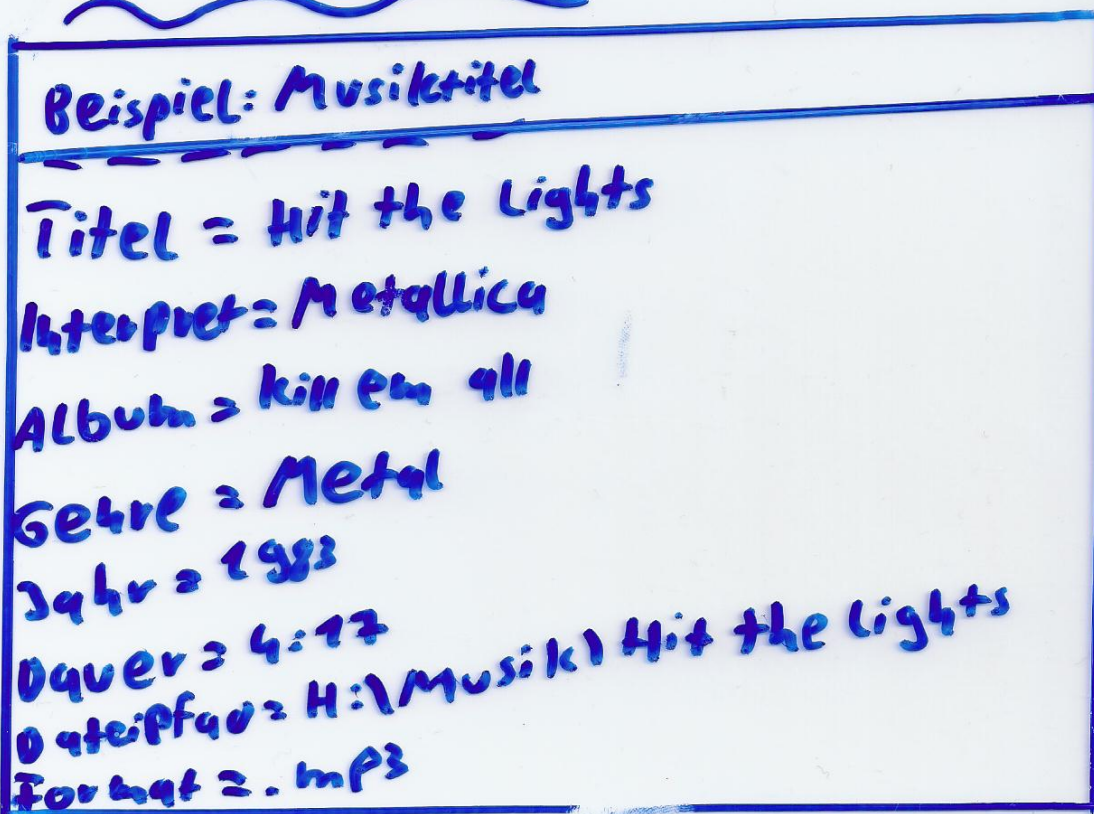 Beispiel: Musiktitel
Titel = Hit the Lights
Interpret = Metallica
Album = kill em all
Genre = Metal
Jahr = 1983
Dauer = 4:17
Dateipfad = H:\Musik\Hit the Lights
Format = .mp3